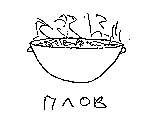 ПЛОВ